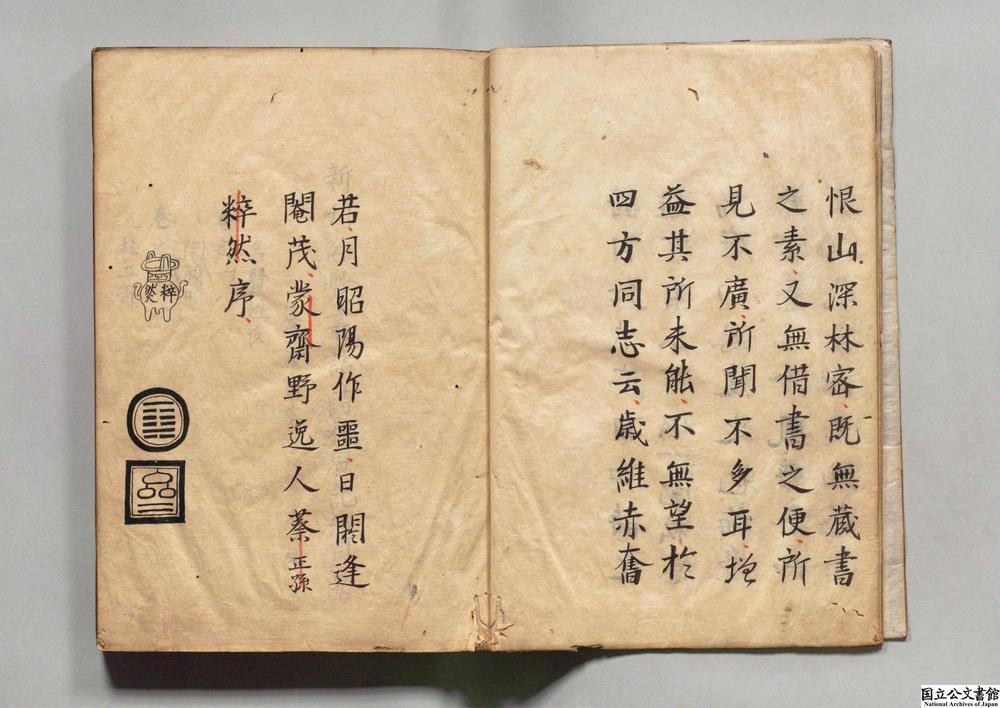 恨山深林密既無藏書
之素又無借書之便所
見不廣所聞不多耳增
益其所未能不無望於
四方同志云歲維赤奮
若月昭陽作噩日閼逢
閹茂蒙齋野逸人蔡正孫
粹然序
粹然
国立公文書館
National Archives of Japan